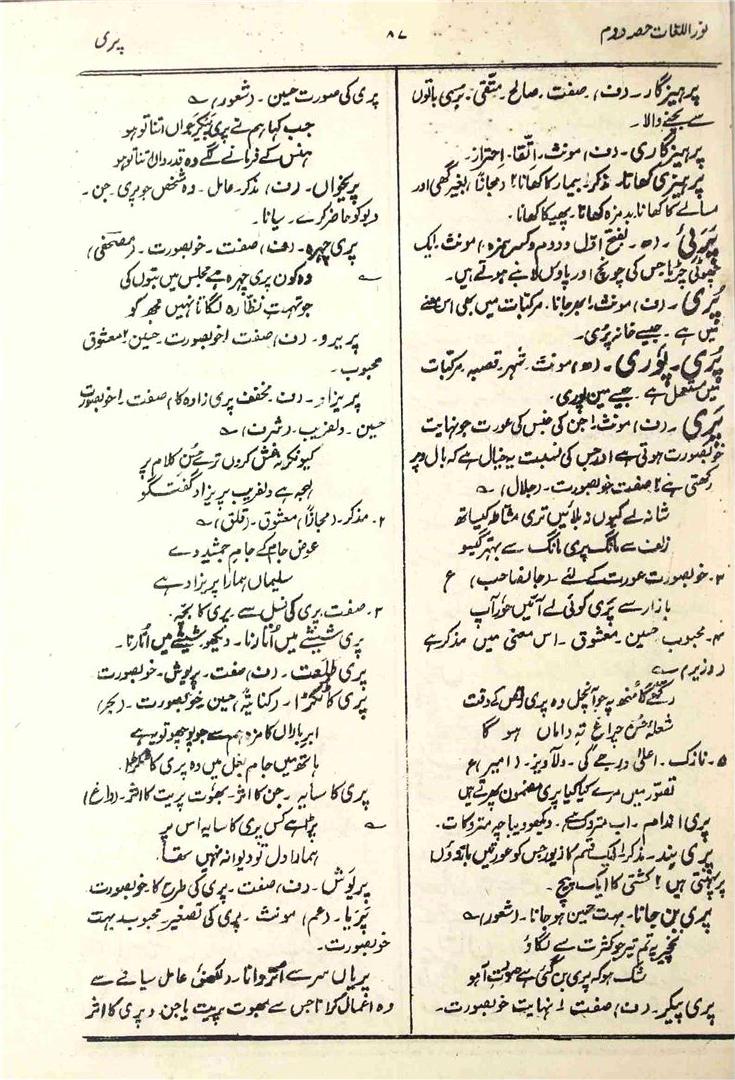 نور اللغات حصہ دوم
۸۷
پری
پرہیز گار۔ (ف) صفت۔ صالح۔ متقی۔ بری باتوں
سے بچنے والا۔
پرہیز گاری۔ (ف) مونث۔ اتقا۔ احتراز۔
پرہیزی کھانا۔ مذکر۔ بیمار کا کھانا ۲ (مجازاً) بغیر گھی اور
مسالے کا کھانا۔ بدمزہ کھانا۔ پھیکا کھانا۔
پَرَئی۔ (ھ۔ بفتح اول و دوم و کسر ہمزہ) مونث۔ ایک
چھوٹی چڑیا جس کی چونچ اور پاؤں لانبے ہوتے ہیں۔
پُری۔ (ف) مونث۔ ا۔بھر جانا۔ مرکبات میں بھی اس معنے
میں ہے۔ جیسے خانہ پُری۔
پُری۔ پُوری۔ (ھ) مونث۔ شہر۔ قصبہ۔ مرکبات
میں مستعمل ہے۔ جیسے مین پوری۔
پَری۔ (ف) مونث۔ ا۔جن کی جنس کی عورت جو نہایت
خوبصورت ہوتی ہے اور جس کی نسبت یہ خیال ہے کہ بال و پر
رکھتی ہے ۲ صفت خوبصورت۔ (جلال) ؎
شانہ لے کیوں نہ بلائیں تری مشاطہ کیساتھ
زلف سے مانگ پری مانگ سے بہتر گیسو
۳۔ خوبصورت عورت کے لئے۔ (جانصاحب) ع
بازار سے پری کوئی لے آئیں حور آپ
۴۔ محبوب حسین۔ معشوق۔ اس معنی میں مذکر ہے
(وزیر) ؎
رکھے گا منھ پہ جو آنچل وہ پری رقص کے وقت
شعلۂ حسن چراغ تہِ داماں ہو گا
۵۔ نازک۔ اعلیٰ درجے کی۔ دلآویز۔ (امیر) ع
تصور میں مرے کیا کیا پری مضمون پھرتے ہیں
پری اندام۔ اب متروک ہے۔ دیکھو دیباچہ متروکات۔
پری بند۔ مذکر۔ ا۔ایک قسم کا زیور جس کو عورتیں بازوؤں
پر پہنتی ہیں ۲ کشتی کا ایک پیچ۔
پری بن جانا۔ بہت حسین ہو جانا۔ (شعور) ؎
نخچیر پہ تم تیر جو کثرت سے لگاؤ
شک ہو کہ پری بن گئی ہے صورتِ آہو
پری پیکر۔ (ف) صفت ا۔نہایت خوبصورت۔
پری کی صورت حسین۔ (شعور) ؎
جب کہا ہم نے پری پیکر جواں اتنا تو ہو
ہنس کے فرمانے لگے وہ قدرداں اتنا تو ہو
پریخواں۔ (ف) مذکر۔ عامل۔ وہ شخص جو پری۔ جن۔
دیو کو حاضر کرے۔ سیانا۔
پری چہرہ۔ (ف) صفت۔ خوبصورت۔ (مصحفی)
؎ وہ کون پری چہرہ ہے مجلس میں بتوں کی
جو تہمتِ نظارہ لگاتا نہیں مجھ کو
پریرو۔ (ف) صفت ا۔خوبصورت۔ حسین ۲ معشوق
محبوب۔
پریزاد۔ (ف۔ مخفف پری زادہ کا) صفت۔ ا۔خوبصورت
حسین۔ دلفریب۔ (شرف) ؎
کیونکر نہ غش کروں ترے حسن کلام پر
لہجہ ہے دلفریب پریزاد گفتگو
۲۔ مذکر۔ (مجازاً) معشوق۔ (قلق) ؎
عوض جام کے جامِ جمشید دے
سلیماں ہمارا پریزاد ہے
۳۔ صفت۔ پری کی نسل سے۔ پری کا بچہ۔
پری شیشے میں اُتارنا۔ دیکھو شیشے میں اُتارنا۔
پری طلعت۔ (ف) صفت۔ پریوش۔ خوبصورت
پری کا ٹکڑا۔ (کنایۃً) حسین خوبصورت۔ (بحر)
ابر باراں کا مزہ ہم سے جو پوچھو تو یہ ہے
ہاتھ میں جام بغل میں وہ پری کا ٹکڑا
پری کا سایہ۔ جن کا اثر۔ بھوت پریت کا اثر۔ (داغ)
؎ پڑا ہے کس پری کا سایہ اس پر
ہمارا دل تو دیوانہ نہیں تھا
پریوش۔ (ف) صفت۔ پری کی طرح کا خوبصورت
پریا۔ (عم) مونث۔ پری کی تصغیر۔ محبوب۔ بہت
خوبصورت۔
پریاں سر سے اُتروانا۔ (لکھنؤ) عامل سیانے سے
وہ اعمال کرانا جس سے بھوت پریت یا جن و پری کا اثر